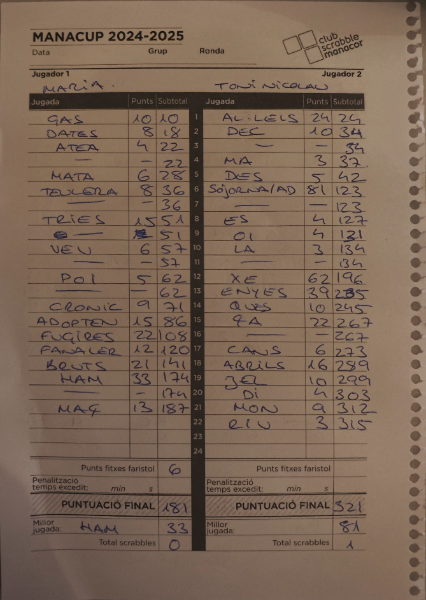 MANACUP 2024-2025
club scrabble manacor
Data Grup Ronda
Jugador 1 Jugador 2
MARIA TONI NICOLAU
Jugada Punts Subtotal Jugada Punts Subtotal
GAS 10 10 1 AL·LELS 24 24
DATES 8 18 2 DEC 10 34
ATEA 4 22 3 — — 34
— — 22 4 MA 3 37
MATA 6 28 5 DES 5 42
TEULERA 8 36 6 SOJORNA/AD 81 123
— — 36 7 — — 123
TRIES 15 51 8 ES 4 127
— 51 9 OI 4 131
VEU 6 57 10 LA 3 134
— — 57 11 — — 134
POI 5 62 12 XE 62 196
— — 62 13 ENYES 39 235
CRONIC 9 71 14 QUES 10 245
ADOPTEN 15 86 15 ÇA 22 267
FUGIRES 22 108 16 — — 267
FANALER 12 120 17 CANS 6 273
BRUTS 21 141 18 ABRILS 16 289
HAM 33 174 19 GEL 10 299
— — 174 20 DI 4 303
MAÇ 13 187 21 MON 9 312
22 RIU 3 315
23
24
Punts fitxes faristol 6 Punts fitxes faristol
Penalització temps excedit: min s Penalització temps excedit: min s
PUNTUACIÓ FINAL 181 PUNTUACIÓ FINAL 321
Millor jugada: HAM 33 Millor jugada: 81
Total scrabbles 0 Total scrabbles 1